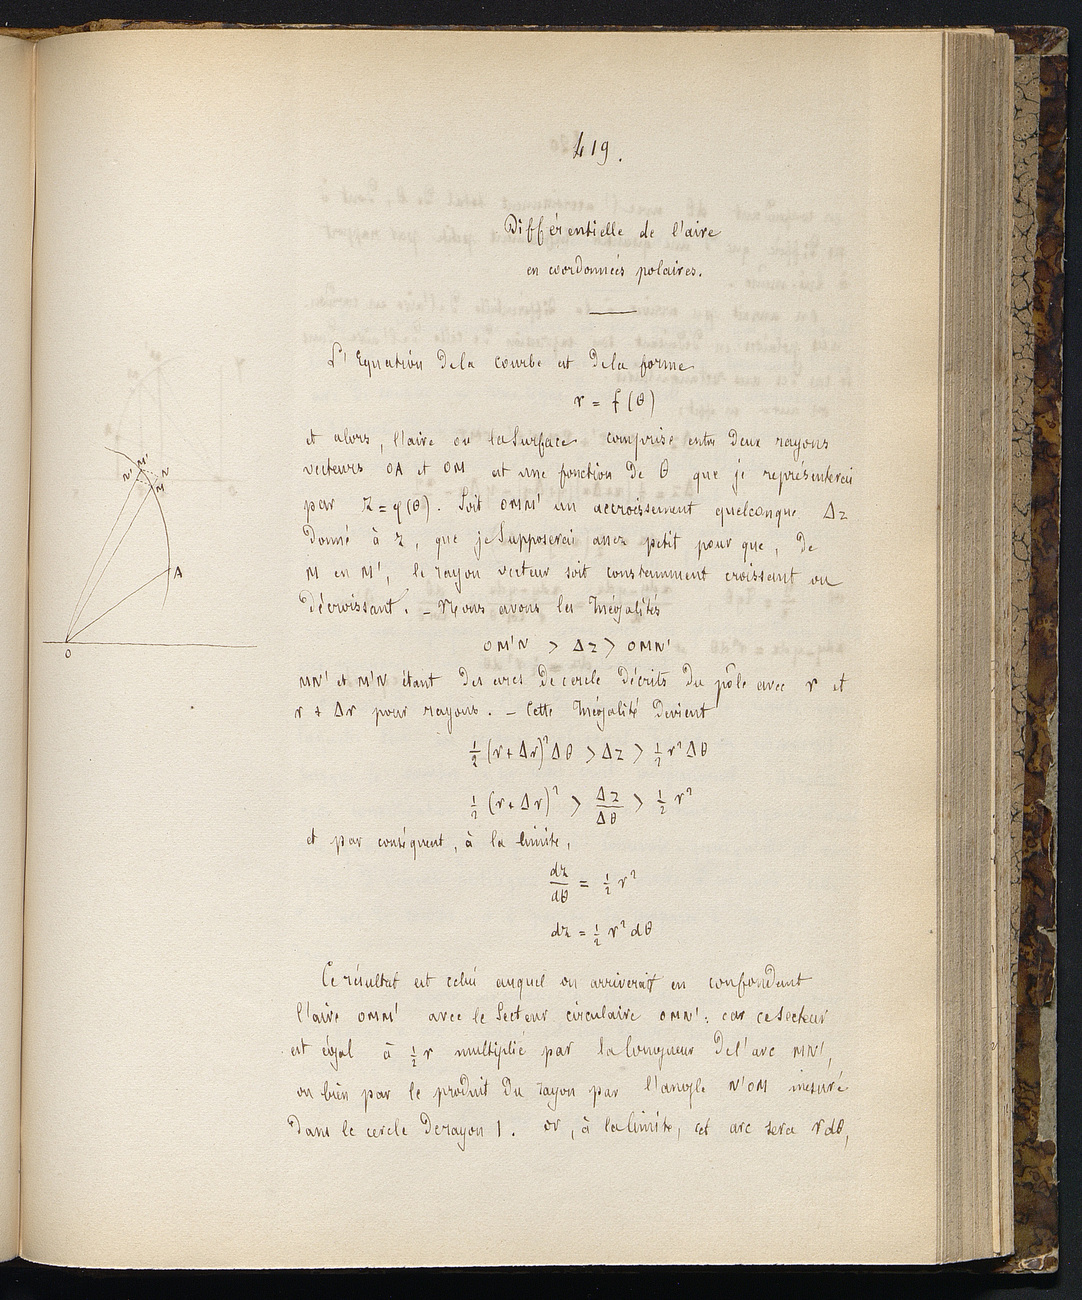 419.
Différentielle de l'aire
en coordonnées polaires.
L'Equation de la courbe est de la forme
r = f(θ)
et alors, l'aire ou la surface comprise entre deux rayons
vecteurs OA et OM est une fonction de θ que je représenterai
par z = φ(θ). Soit OMM' un accroissement quelconque Δz
donné à z, que je supposerai assez petit pour que, de
M en M', le rayon vecteur soit constamment croissant ou
décroissant. – Nous avons les Inégalités
OM'N > Δz > OMN'
MN' et M'N étant des arcs de cercle décrits du pôle avec r et
r + Δr pour rayons. – Cette Inégalité devient
½(r+Δr)²Δθ > Δz > ½r²Δθ
½(r+Δr)² > Δz/Δθ > ½r²
et par conséquent, à la limite,
dz/dθ = ½r²
dz = ½r²dθ
Ce résultat est celui auquel on arriverait en confondant
l'aire OMM' avec le secteur circulaire OMN'; car ce secteur
est égal à ½r multiplié par la longueur de l'arc MN',
ou bien par le produit du rayon par l'angle N'OM mesuré
dans le cercle de rayon 1. or, à la limite, cet arc sera rdθ,
N' M' N
M
A
O